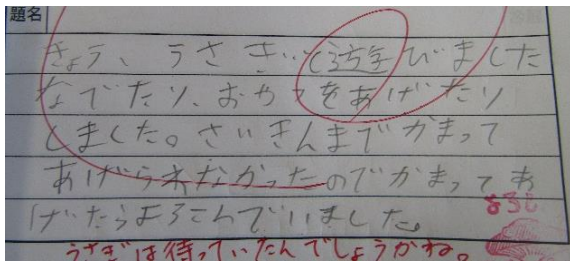 題名
きょう、うさぎと遊びました
なでたり、おやつをあげたり
しました。さいきんまでかまって
あげられなかったのでかまってあ
げたらよろこんでいました。
よろし
うさぎは待っていたんでしょうかね。